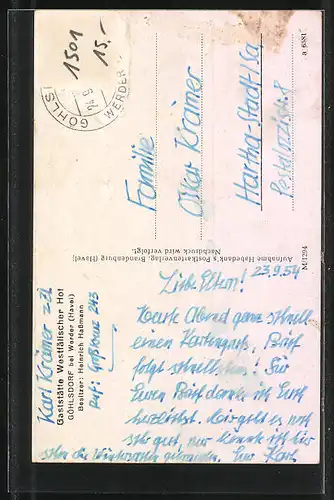 1501
15.-
GÖHLS
WERDER
Karl Krämer z.Zt.
Gaststätte Westfälischer Hof
GÖHLSDORF bei Werder (Havel)
Besitzer: Heinrich Haßmann
Ruf: Großkreuz 243
23.9.54
Liebe Eltern!
Heute Abend ganz schnell
einen Kartengruß. Brief
folgt schnellstens! Für
Euren Brief danke ich Euch
herzlichst. Mir geht es noch
sehr gut, nur könnte ich hier
schon die Wintersachen gebrauchen. Euer Karl
Aufnahme Habedank's Postkartenverlag, Brandenburg (Havel)
Nachdruck wird verfolgt.
M/1294
Familie
Oskar Krämer
Hartha-Stadt/Sa.
Pestalozzistr. 8
a 6381